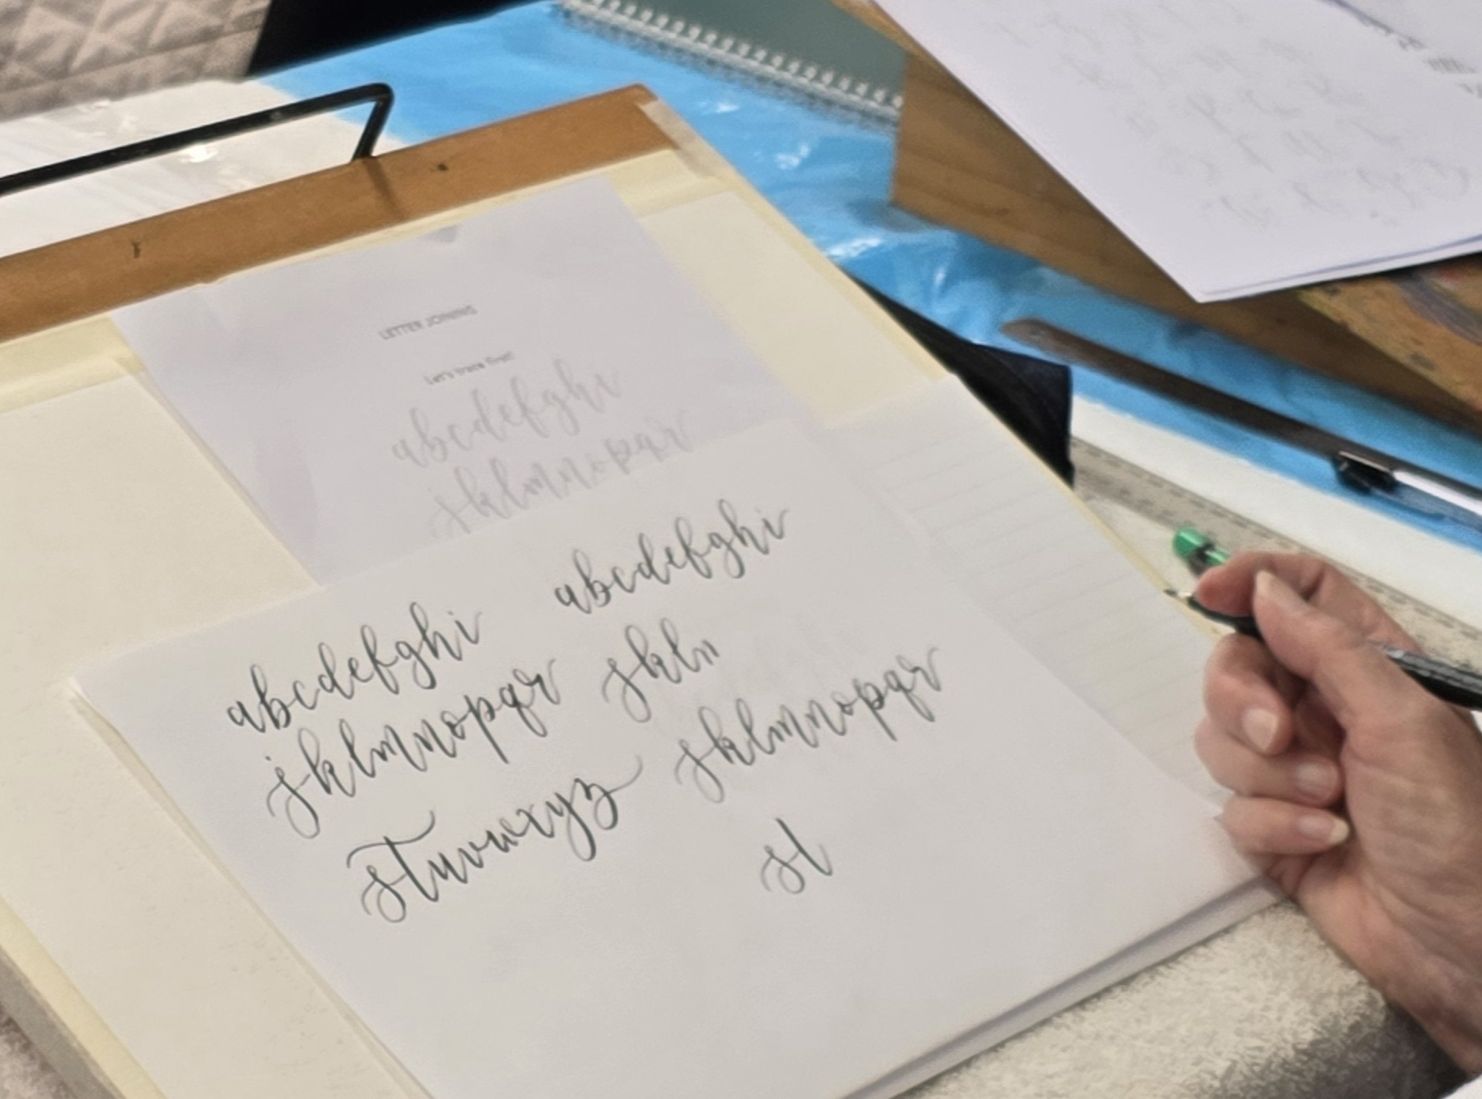 LETTER JOINING
Let's trace first!
abcdefghi
jklmnopqr
abcdefghi
jklmnopqr
stuvwxyz
abcdefghi
jkln
jklmnopqr
st